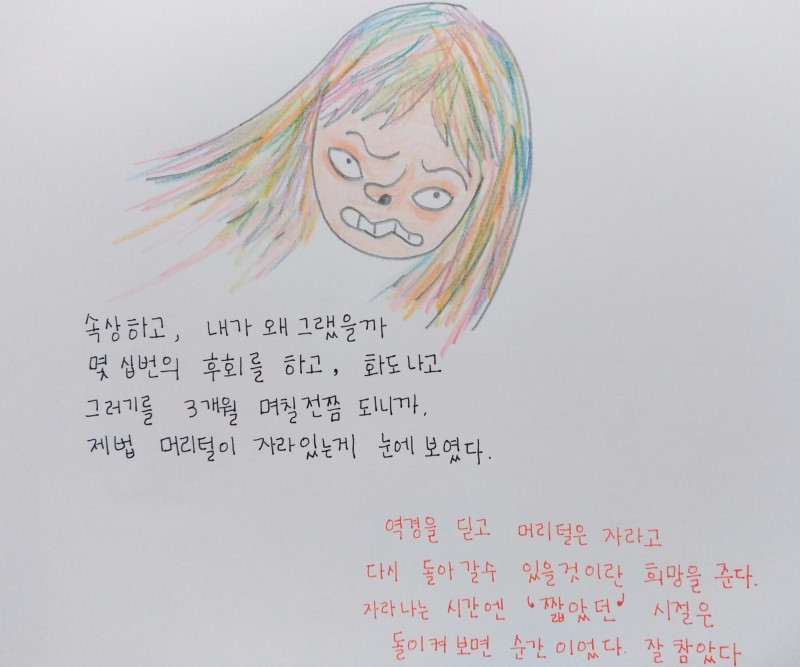 속상하고, 내가 왜 그랬을까
몇 십번의 후회를 하고, 화도 나고
그러기를 3개월 며칠전쯤 되니까,
제법 머리털이 자라있는게 눈에 보였다.
역경을 딛고 머리털은 자라고
다시 돌아 갈수 있을것이란 희망을 준다.
자라나는 시간엔 '짧았던' 시절은
돌이켜 보면 순간 이었다. 잘 참았다